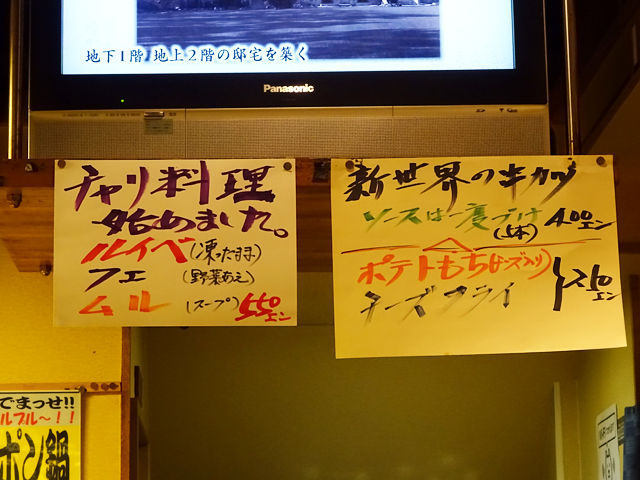 地下1階 地上2階の邸宅を築く
Panasonic
チャリ料理
始めました。
ルイベ(凍ったまま)
フェ(野菜あえ)
ムル(スープ)550エン
新世界の串カツ
ソースは一度づけ(5本)400エン
ポテトもち(チーズ入り)
チーズフライ
350エン
でまっせ!!
ルブル〜!!
ポン鍋